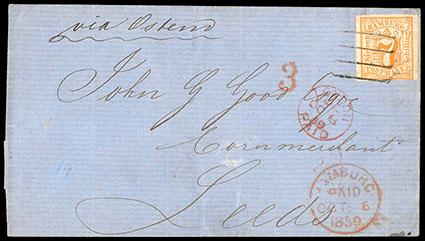 via Ostend
HAMBURG
7
POSTMARKE
3
John G Good Esqre
PAID
Cornmerchant
Leeds
HAMBURG
PAID
OCT. 6
1859